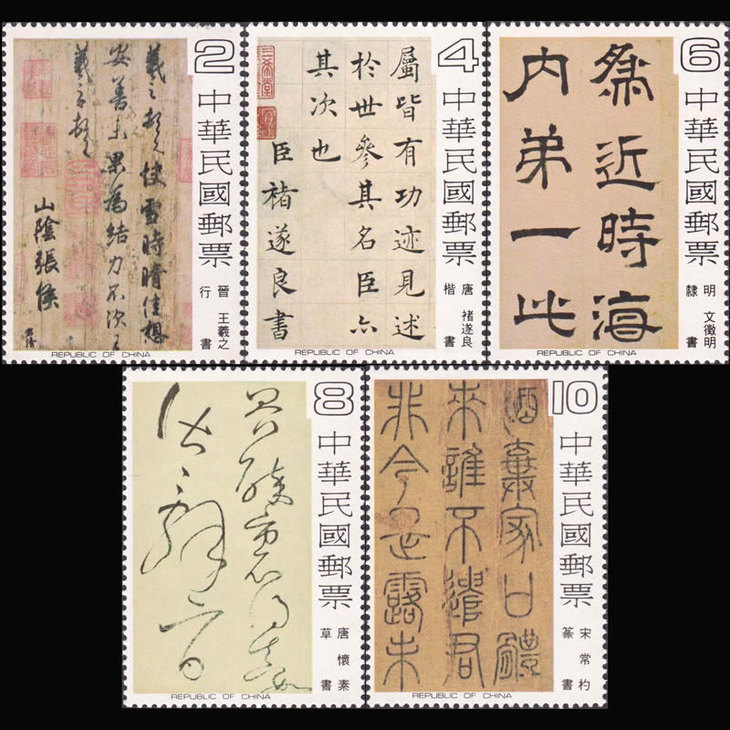 2
中華民國郵票
晉 王羲之
行書
羲之頓首快雪時晴佳想
安善未果為結力不次王
羲之頓首
山陰張侯
REPUBLIC OF CHINA
4
中華民國郵票
唐 褚遂良
楷書
屬皆有功迹見述
於世參其名臣亦
其次也
臣褚遂良書
REPUBLIC OF CHINA
6
中華民國郵票
明 文徵明
隸書
近時海
內弟一
REPUBLIC OF CHINA
8
中華民國郵票
唐 懷素
草書
REPUBLIC OF CHINA
10
中華民國郵票
宋 常杓
篆書
酒棄家口體
來誰不遣君
非今是露未
REPUBLIC OF CHINA